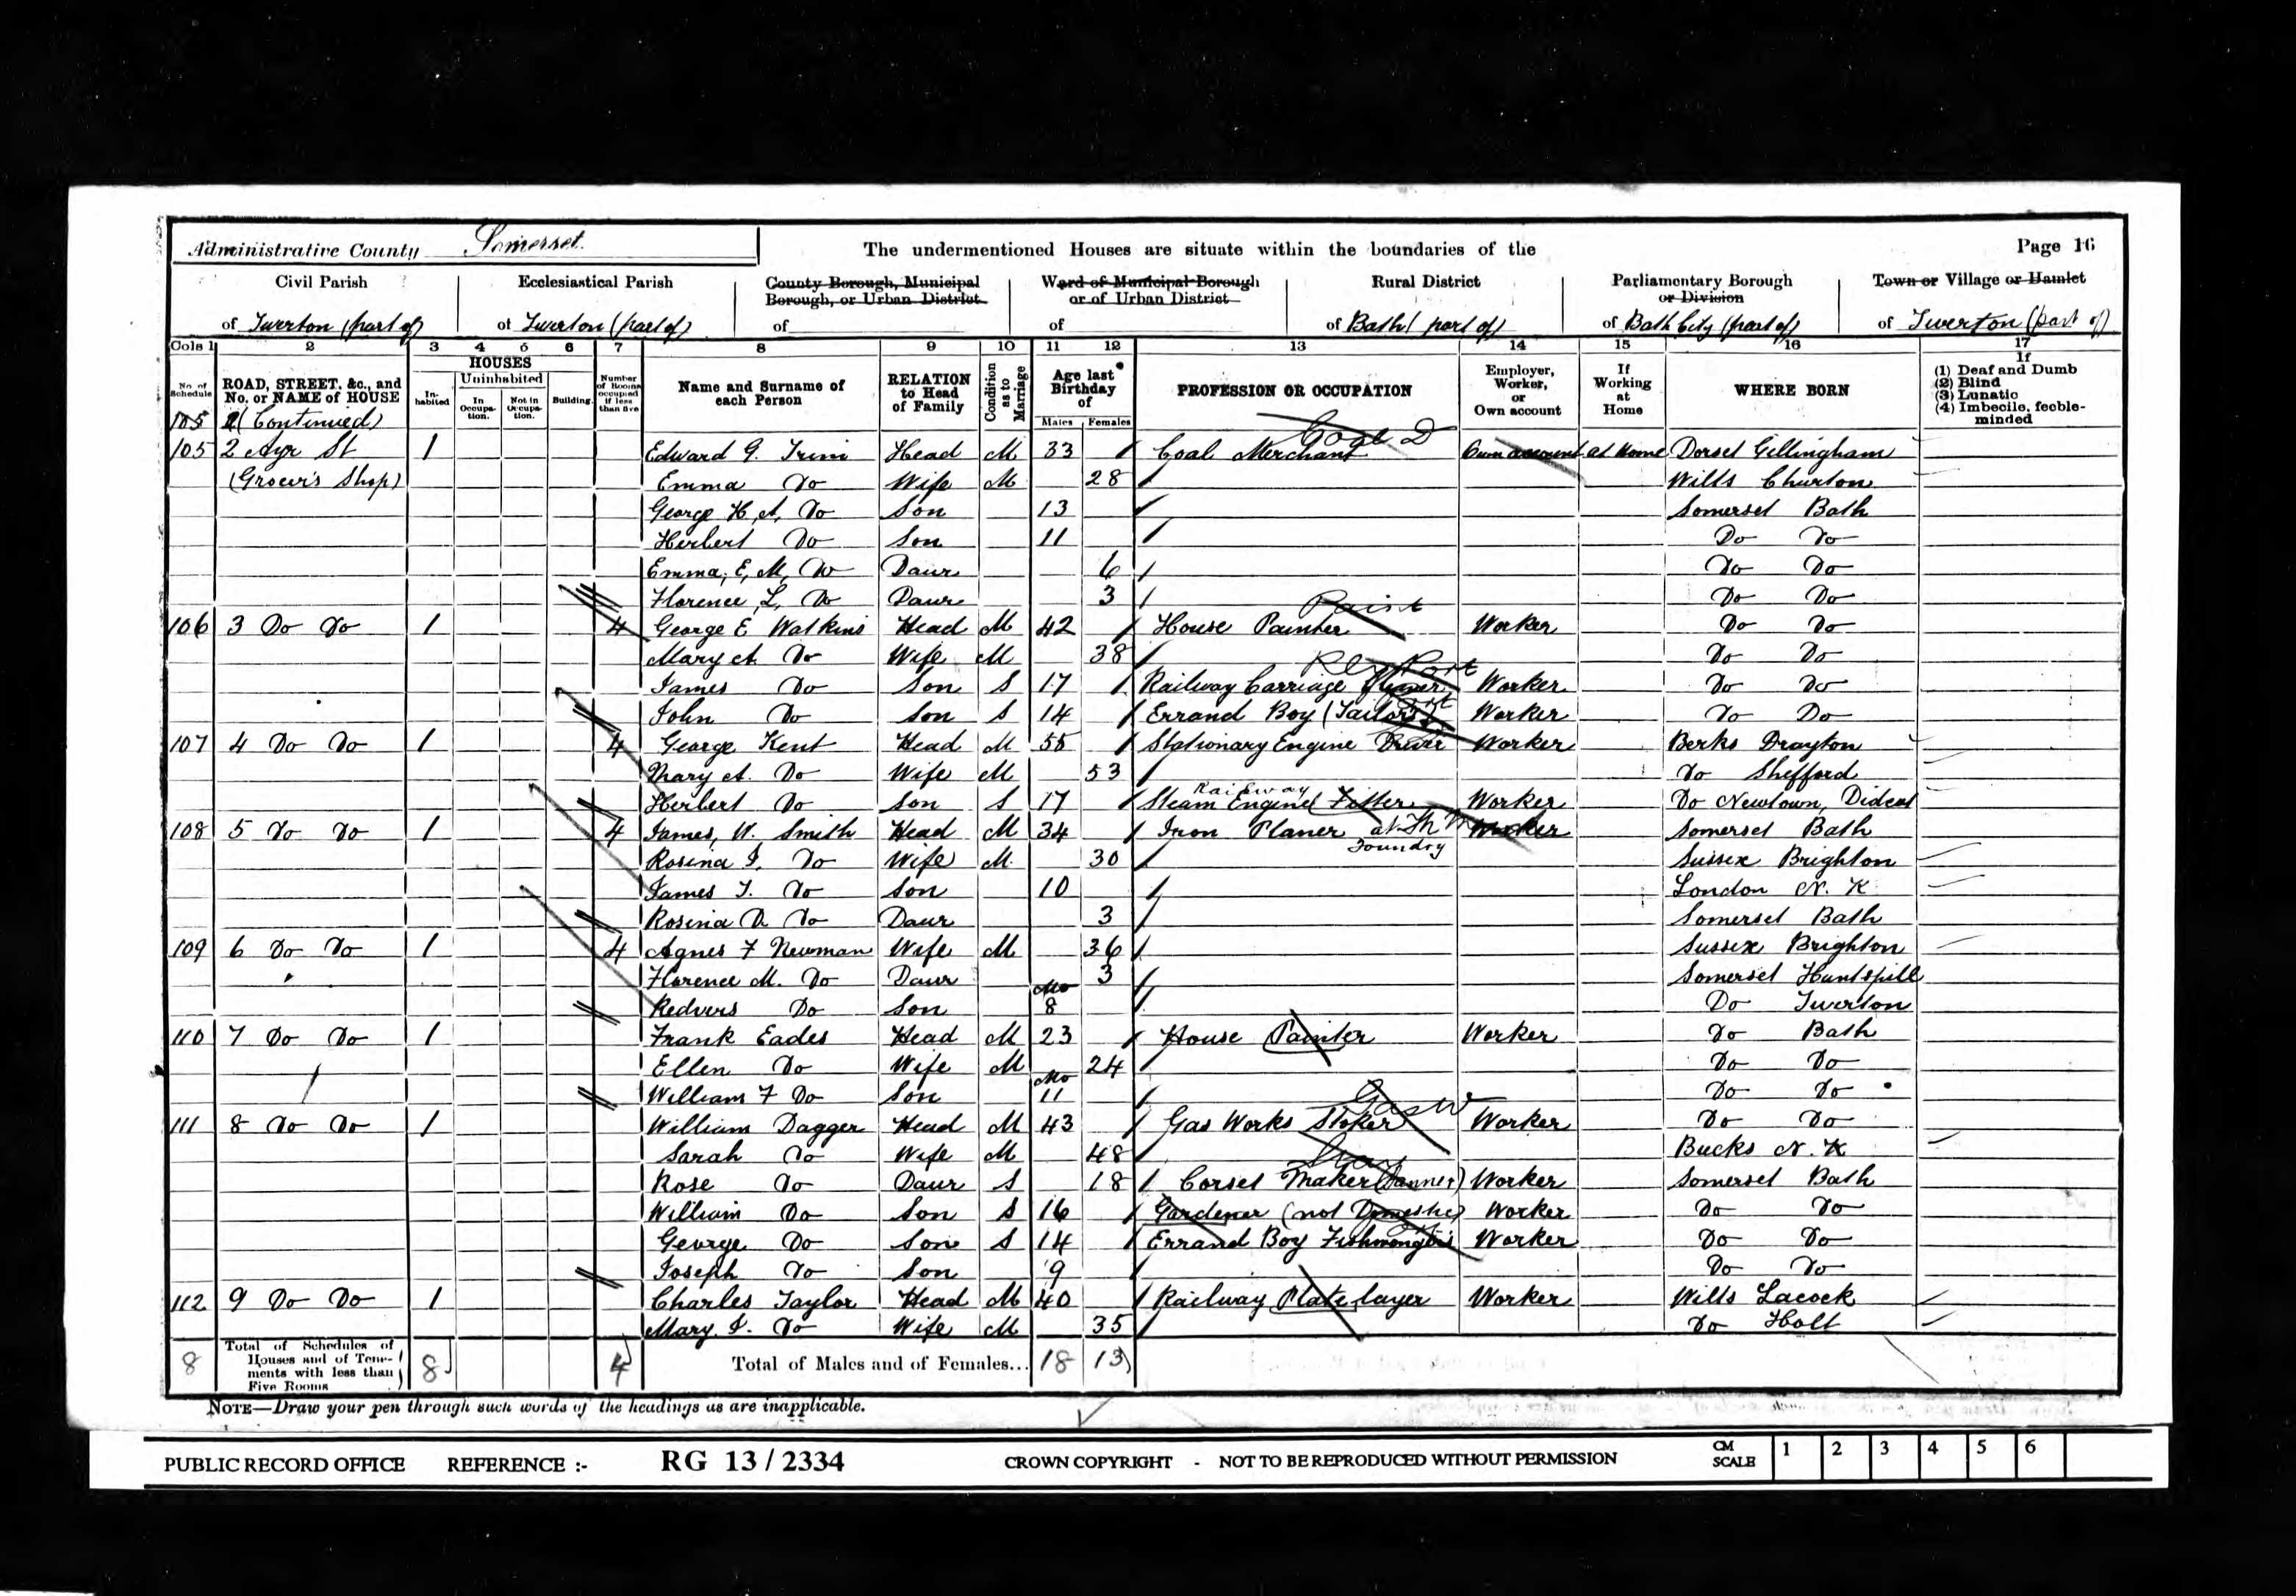 Administrative County Somerset. The undermentioned Houses are situate within the boundaries of the Page 16
Civil Parish Ecclesiastical Parish County Borough, Municipal Borough, or Urban District Ward of Municipal Borough or of Urban District Rural District Parliamentary Borough or Division Town or Village or Hamlet
of Twerton (part of) of Twerton (part of) of of of Bath (part of) of Bath City (part of) of Twerton (part of)
Cols 1 2 3 4 5 6 7 8 9 10 11 12 13 14 15 16 17
No. of Schedule ROAD, STREET, &c., and No. or NAME of HOUSE HOUSES In-habited Uninhabited In Occupa-tion. Not in Occupa-tion. Building. Number of Rooms occupied if less than five Name and Surname of each Person RELATION to Head of Family Condition as to Marriage Age last Birthday of Males Females PROFESSION OR OCCUPATION Employer, Worker, or Own account If Working at Home WHERE BORN If (1) Deaf and Dumb (2) Blind (3) Lunatic (4) Imbecile, feeble-minded
105 (Continued)
105 2 Ayr St 1 Edward G. Trim Head M 33 Coal Merchant Coal D Own account at Home Dorset Gillingham
(Grocer's Shop) Emma Do Wife M 28 Wilts Churton
George H. A. Do Son 13 Somerset Bath
Herbert Do Son 11 Do Do
Emma, E, M, Do Daur 6 Do Do
Florence, L, Do Daur 3 Do Do
106 3 Do Do 1 4 George E Watkins Head M 42 House Painter Paint Worker Do Do
Mary A. Do Wife M 38 Do Do
James Do Son S 17 Railway Carriage Cleaner Worker Do Do
John Do Son S 14 Errand Boy (Tailors) Worker Do Do
107 4 Do Do 1 4 George Kent Head M 55 Stationary Engine Driver Worker Berks Drayton
Mary A. Do Wife M 53 Do Shefford
Herbert Do Son S 17 Steam Engine Fitter Railway Worker Do Newtown, Didcot
108 5 Do Do 1 4 James, W. Smith Head M 34 Iron Planer at Foundry Worker Somerset Bath
Rosina I. Do Wife M 30 Sussex Brighton
James T. Do Son 10 London N. K
Rosina D. Do Daur 3 Somerset Bath
109 6 Do Do 1 4 Agnes F Newman Wife M 36 Sussex Brighton
Florence M. Do Daur 3 Somerset Huntspill
Redvers Do Son Mo 8 Do Twerton
110 7 Do Do 1 Frank Eades Head M 23 House Painter Worker Do Bath
Ellen Do Wife M 24 Do Do
William F Do Son Mo 11 Do Do
111 8 Do Do 1 William Dagger Head M 43 Gas Works Stoker Gas W Worker Do Do
Sarah Do Wife M 48 Bucks N. K
Rose Do Daur S 18 Corset Maker Worker Somerset Bath
William Do Son S 16 Gardener (not Domestic) Worker Do Do
George Do Son S 14 Errand Boy Fishmongers Worker Do Do
Joseph Do Son 9 Do Do
112 9 Do Do 1 Charles Taylor Head M 40 Railway Plate layer Worker Wilts Lacock
Mary. I. Do Wife M 35 Do Holt
8 Total of Schedules of Houses and of Tene-ments with less than Five Rooms 8 4 Total of Males and of Females... 18 13
NOTE—Draw your pen through such words of the headings as are inapplicable.
PUBLIC RECORD OFFICE REFERENCE :- RG 13 / 2334 CROWN COPYRIGHT - NOT TO BE REPRODUCED WITHOUT PERMISSION CM SCALE 1 2 3 4 5 6